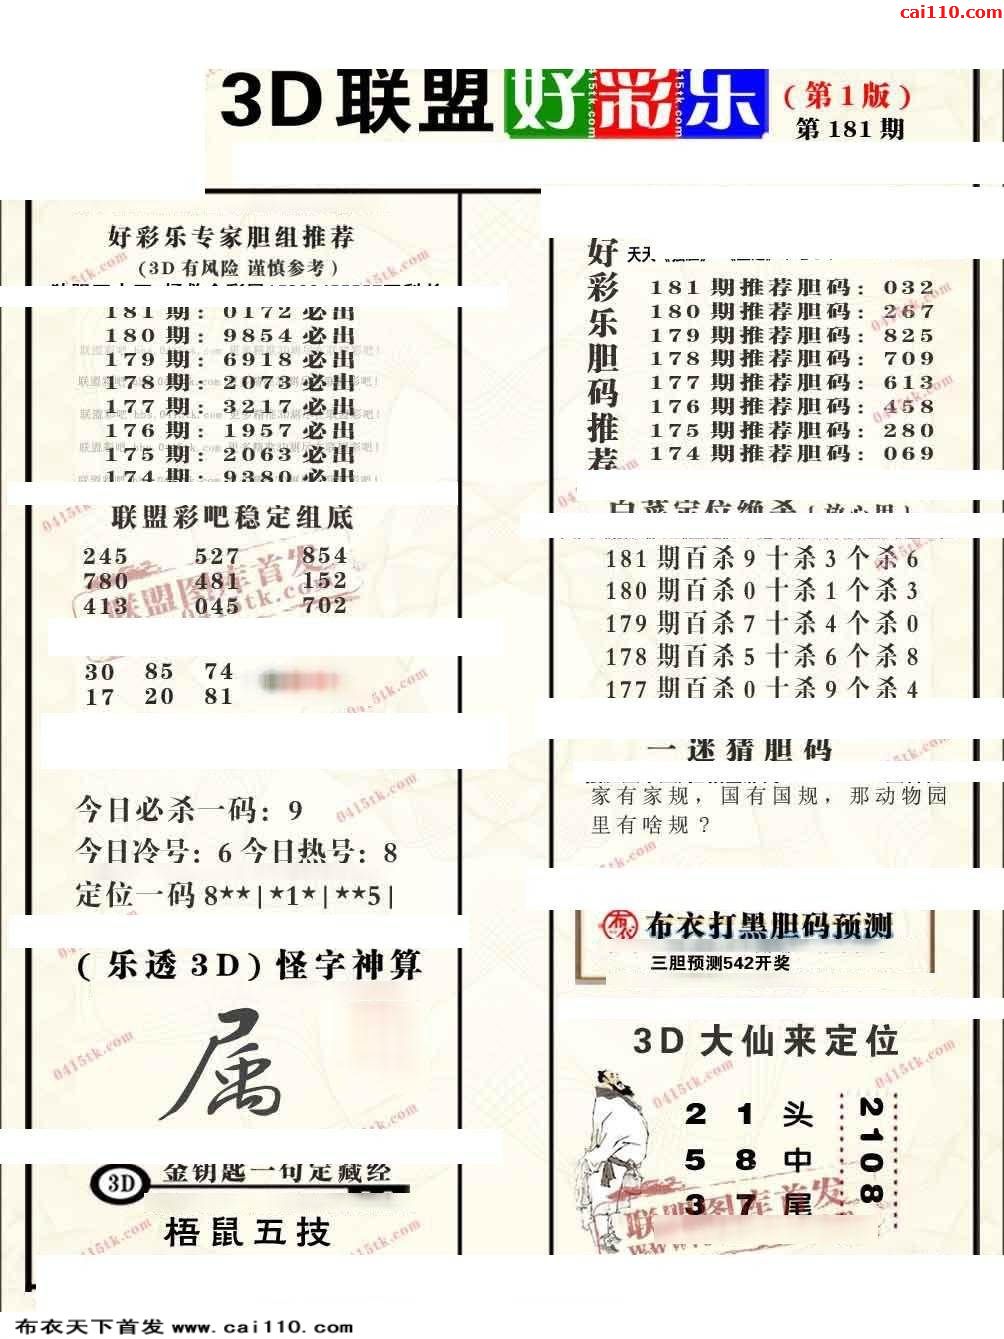 cai110.com
3D联盟好彩乐
(第1版)
第181期
好彩乐专家胆组推荐
(3D有风险 谨慎参考)
181期: 0172必出
180期: 9854必出
179期: 6918必出
178期: 2073必出
177期: 3217必出
176期: 1957必出
175期: 2063必出
174期: 9380必出
联盟彩吧稳定组底
245 527 854
780 481 152
413 045 702
30 85 74
17 20 81
今日必杀一码: 9
今日冷号: 6 今日热号: 8
定位一码 8**|*1*|**5|
(乐透3D)怪字神算
属
3D
金钥匙一句定藏经
梧鼠五技
好彩乐胆码推荐
181期推荐胆码: 032
180期推荐胆码: 267
179期推荐胆码: 825
178期推荐胆码: 709
177期推荐胆码: 613
176期推荐胆码: 458
175期推荐胆码: 280
174期推荐胆码: 069
白菜定位绝杀(放心用)
181期百杀9十杀3个杀6
180期百杀0十杀1个杀3
179期百杀7十杀4个杀0
178期百杀5十杀6个杀8
177期百杀0十杀9个杀4
一迷猜胆码
家有家规，国有国规，那动物园
里有啥规？
布衣 布衣打黑胆码预测
三胆预测542开奖
3D大仙来定位
2 1 头
5 8 中
3 7 尾
2108
联盟图库首发
0415tk.com
布衣天下首发 www.cai110.com